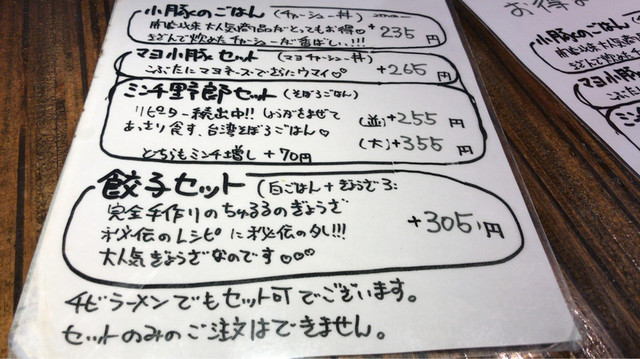 小豚のごはん（チャーシュー丼） +235円
開店以来大人気商品だとってもお得
が炒めたチャーシューが香ばしい!!!
マヨ小豚セット（マヨチャーシュー丼） +265円
こぶたにマヨネーズでさらにウマイ♡♡
ミンチ野郎セット（そぼろごはん）
リピーター続出中!! しょうがをまぜて
あっさり食す、台湾そぼろごはん♡
(並)+255円
(大)+355円
どちらもミンチ増し +70円
餃子セット（白ごはん+ぎょうざ3コ
完全手作りのちゅるるのぎょうざ
秘伝のレシピに秘伝のタレ!!!
大人気ぎょうざなのです♡♡♡
+305円
チビラーメンでもセット可でございます。
セットのみのご注文はできません。
お得な
小豚のごはん
開店以来大人気商品
マヨ小豚
こぶたに